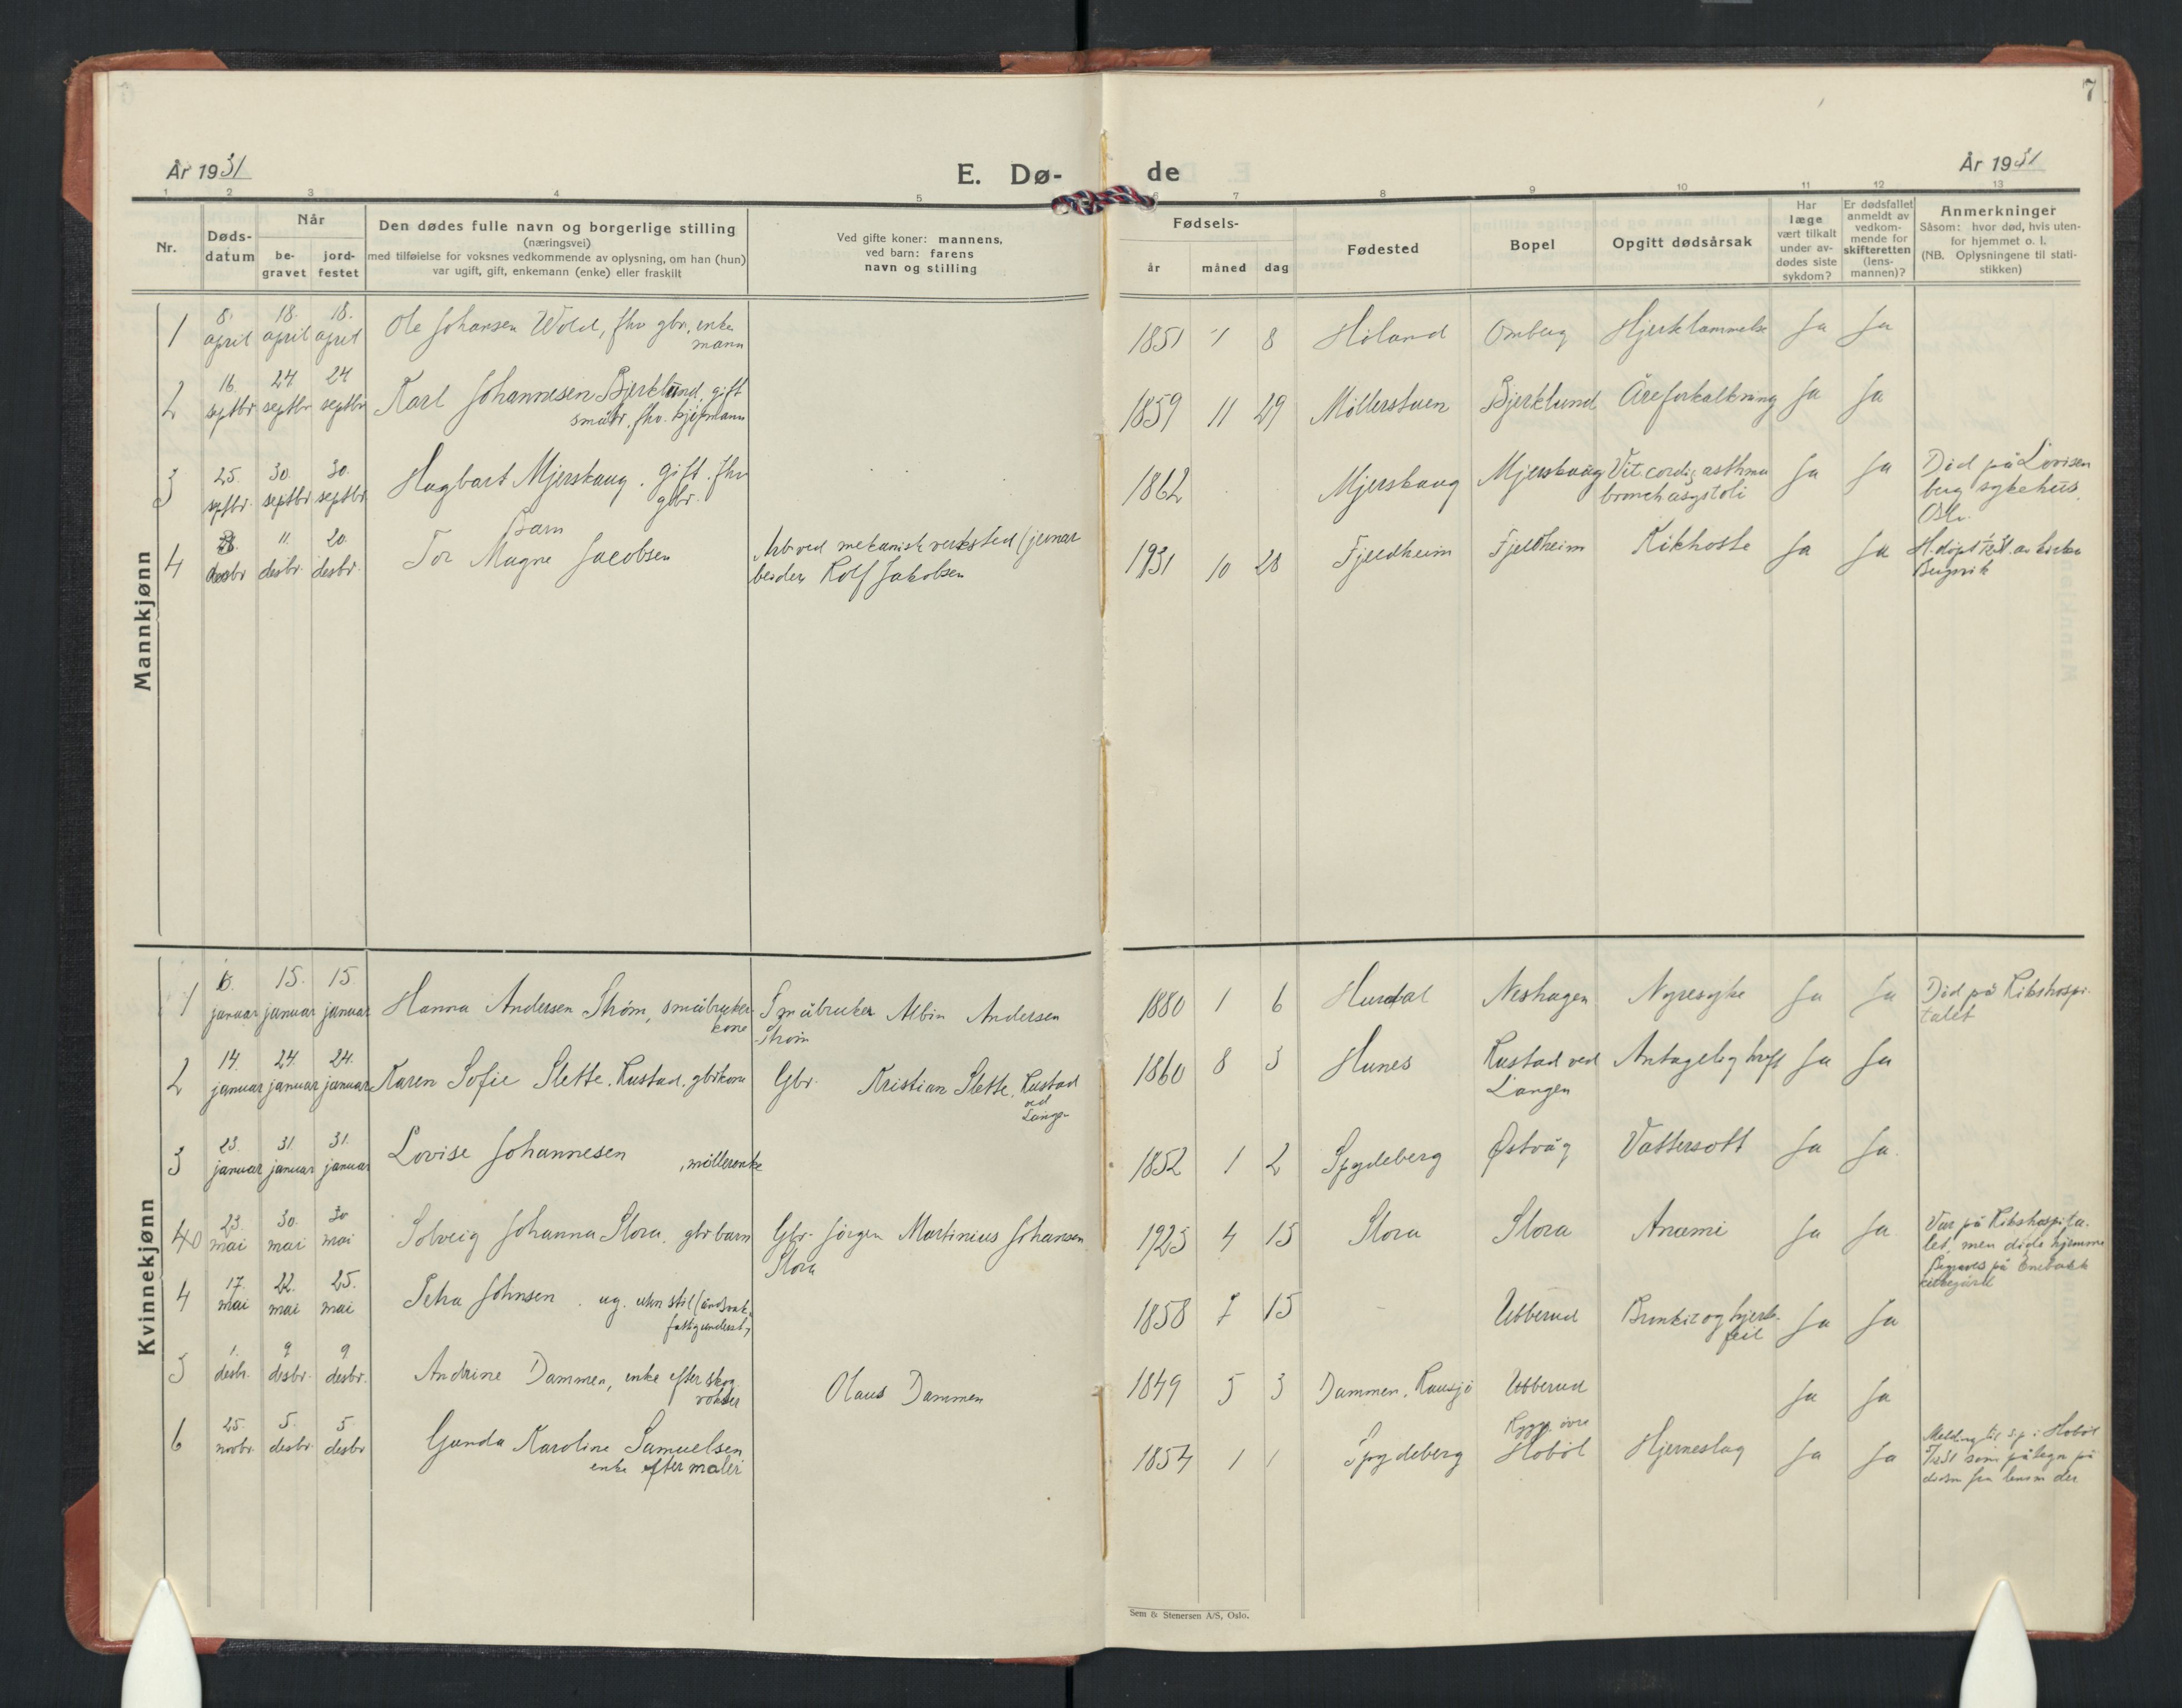 7
År 1931
E. Dø-
de
År 1931
1 2 3 4 5 6 7 8 9 10 11 12 13
Nr.
Døds-
datum
Når
be-
gravet
jord-
festet
Den dødes fulle navn og borgerlige stilling
(næringsvei)
med tilføielse for voksnes vedkommende av oplysning, om han (hun)
var ugift, gift, enkemann (enke) eller fraskilt
Ved gifte koner: mannens,
ved barn: farens
navn og stilling
Fødsels-
år måned dag
Fødested
Bopel
Opgitt dødsårsak
Har
læge
vært tilkalt
under av-
dødes siste
sykdom?
Er dødsfallet
anmeldt av
vedkom-
mende for
skifteretten
(lens-
mannen)?
Anmerkninger
Såsom: hvor død, hvis uten-
for hjemmet o. l.
(NB. Oplysningene til stati-
stikken)
Mannkjønn
8. 18. 18.
1 april april april Ole Johansen Wold, fhv gbr, enke 1851 1 8 Høland Omberg Hjerklammelse Ja Ja
mann
16. 24 24
2 septbr septbr septbr Karl Johannesen Bjerklund, gift 1859 11 29 Møllerstuen Bjerklund Åreforkalkning Ja Ja
småbr. fhv. kjøpmann
25. 30. 30.
3 septbr. septbr. septbr. Hagbart Mjerskaug. gift. fhv 1862 Mjerskaug Mjerskaug Vit. cordis, asthma Ja Ja Død på Lovisen
gbr. bronch asystoli berg sykehus,
Oslo.
11. 20.
4 desbr desbr. desbr. Barn
Tor Magne Jacobsen Arb. ved mekanisk verksted (jernar 1931 10 28 Fjeldheim Fjeldheim Kikhoste Ja Ja
beider Rolf Jakobsen
Kvinnekjønn
6. 15. 15.
1 januar januar januar Hanna Andersen Strøm, småbruker Småbruker Albin Andersen 1880 1 6 Hurdal Neshagen Nyresyke Ja Ja Død på Rikshospi-
kone Strøm talet
14. 24. 24.
2 januar januar januar Karen Sofie Slette. Rustad. gbrkone Gbr. Kristian Slette, Rustad 1860 8 3 Hunes Rustad ved Antagelig kreft Ja Ja
ved Langen
Langen
23. 31. 31.
3 januar januar januar Lovise Johannesen, møllerenke 1852 1 2 Spydeberg Østvåg Vattersott Ja Ja.
23. 30. 30
40 mai mai mai Solveig Johanna Slora. gbrbarn Gbr. Jørgen Martinius Johansen 1925 4 15 Slora Slora Anæmi Ja Ja Var på Rikshospita-
Slora let, men døde hjemme
Begraves på Enebakk
kirkegård
17. 22. 25.
4 mai mai mai Petra Johnsen. ug. uten stil (åndssvak, 1858 7 15 - Ubberud Bronkit og hjerte- Ja Ja
fattigunderst.) feil
1. 9 9
5 desbr. desbr. desbr. Andrine Dammen, enke efter skog Olaus Dammen 1849 5 3 Dammen, Rausjø Ubberud Ja Ja
vokter
25. 5. 5. Rygg øvre
6 novbr. desbr. desbr Gunda Karoline Samuelsen 1854 1 1 Spydeberg Hobøl Hjerneslag Ja Ja Melding til s.p. i Hobøl
enke efter maler
Sem & Stenersen A/S, Oslo.